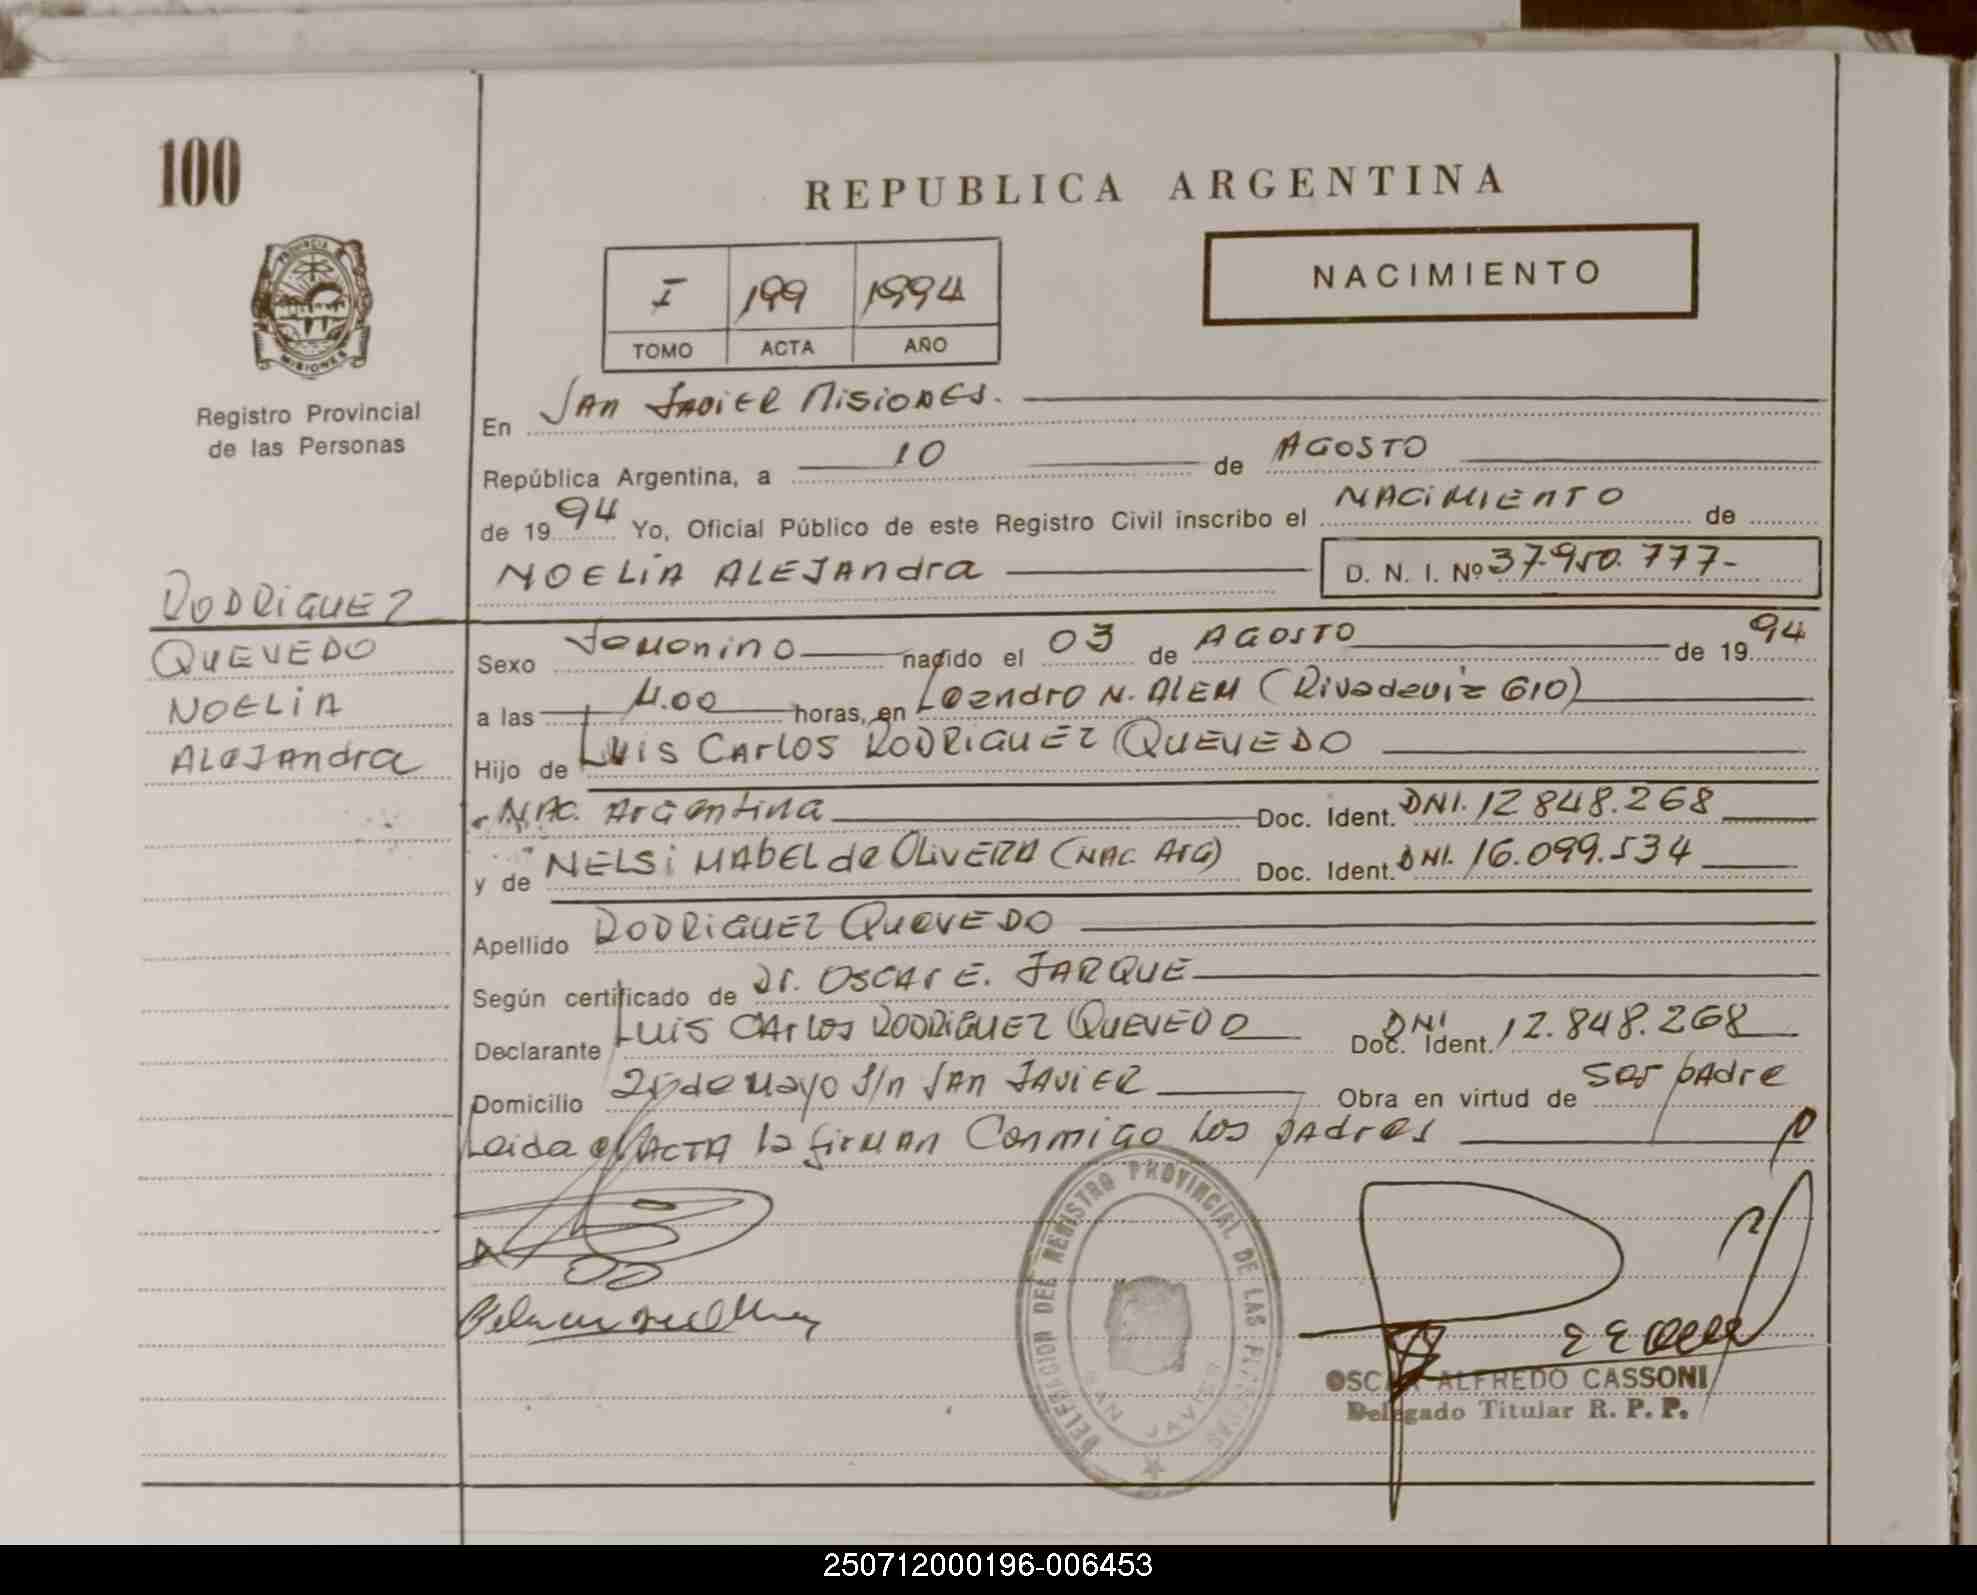 100
REPUBLICA ARGENTINA
NACIMIENTO
I 199 1994
TOMO ACTA AÑO
PROVINCIA
MISIONES
Registro Provincial
de las Personas
En SAN JAVIER MISIONES.
República Argentina, a 10 de AGOSTO
de 1994 Yo, Oficial Público de este Registro Civil inscribo el NACIMIENTO de
NOELIA ALEJAndra D. N. I. Nº 37.950.777-
RODRIGUEZ
QUEVEDO
NOELIA
ALEJAndra
Sexo Femenino nacido el 03 de AGOSTO de 1994
a las 4.00 horas, en Leandro N. ALEM (Rivadavia 610)
Hijo de LUIS CARLOS RODRIGUEZ QUEVEDO
NAC. Argentina Doc. Ident. DNI. 12.848.268
y de NELSI MABEL de OLIVERA (NAC. Arg) Doc. Ident. DNI. 16.099.534
Apellido RODRIGUEZ QUEVEDO
Según certificado de Dr. OSCAR E. JARQUE
Declarante LUIS CARLOS RODRIGUEZ QUEVEDO Doc. Ident. DNI 12.848.268
Domicilio 25 de Mayo S/n SAN JAVIER Obra en virtud de ser padre
Leida el ACTA la firman Conmigo los padres
DELEGACION DEL REGISTRO PROVINCIAL DE LAS PERSONAS
SAN JAVIER
OSCAR ALFREDO CASSONI
Delegado Titular R. P. P.
250712000196-006453